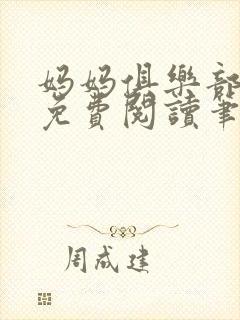 媽媽俱樂部
免費閱讀筆
周成建